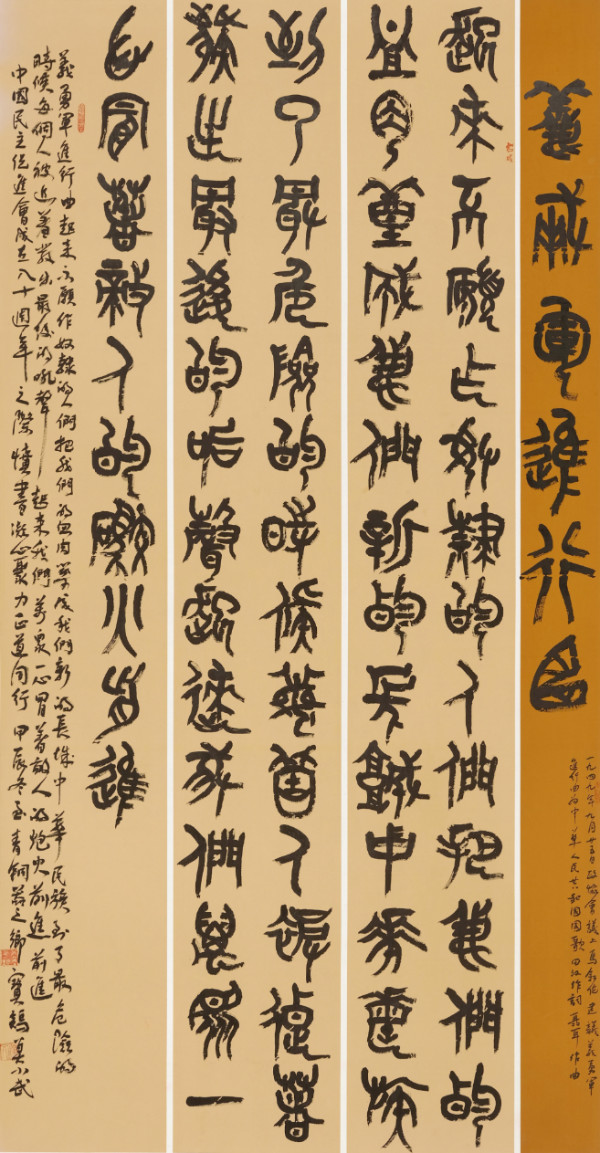 義勇軍進行曲
一九四九年九月廿五日政協會議上馬敘倫建議義勇軍
進行曲為中華人民共和國國歌田漢作詞聶耳作曲
起來不願乍奴隸的人們把我們的
血肉築成我們新的長城中華民族
到了最危險的時候每個人被迫著
發出最後的吼聲起來我們萬眾一
心冒著敵人的炮火前進
義勇軍進行曲起來不願作奴隸的人們把我們的血肉築成我們新的長城中華民族到了最危險的
時候每個人被迫著發出最後的吼聲起來我們萬眾一心冒著敵人的炮火前進前進
中國民主促進會成立八十週年之際慎書凝心聚力正道同行甲辰冬至青銅器之鄉寶鷄莫小武